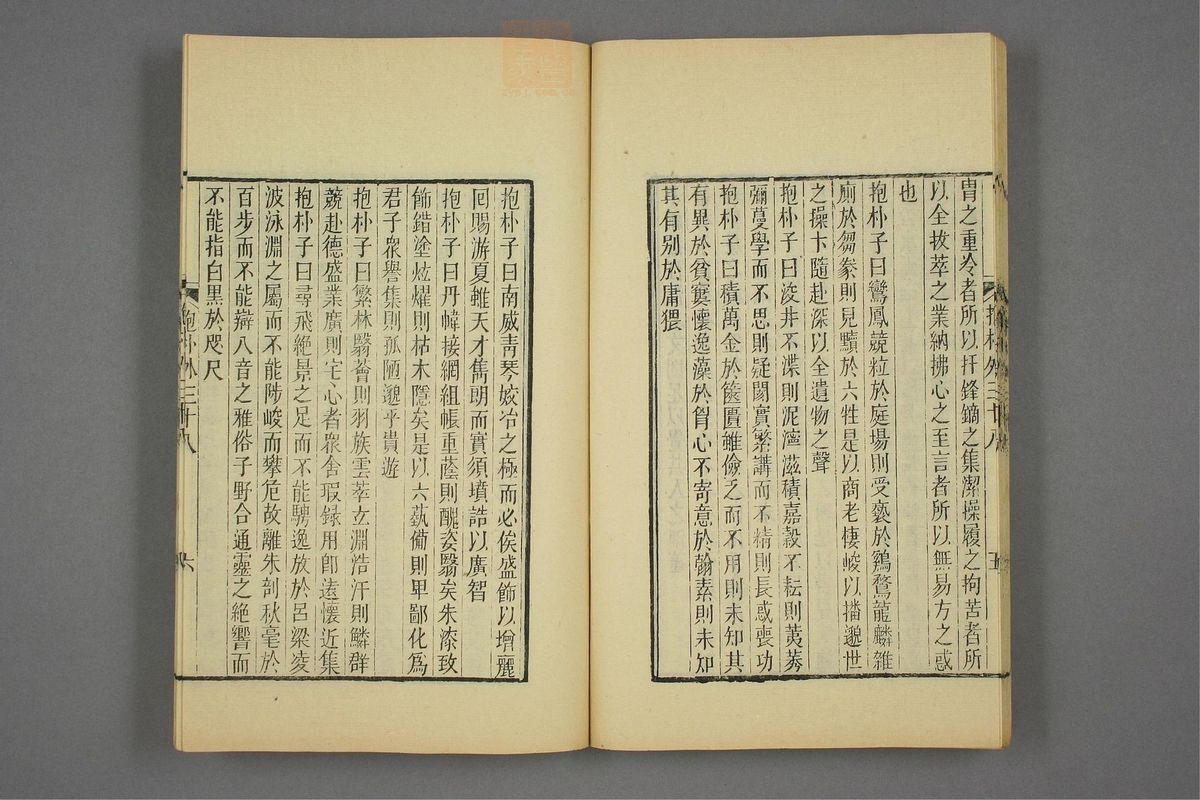 胄之重冷者所以扞鋒鏑之集潔操履之拘苦者所
以全拔萃之業納拂心之至言者所以無易方之惑
也
抱朴子曰鸞鳳競粒於庭場則受褻於鷄鶩龍麟雜
廁於芻豢則見黷於六牲是以商老棲峻以播邈世
之操卞隨赴深以全遺物之聲
抱朴子曰浚井不渫則泥濘滋積嘉穀不耘則荑莠
彌蔓學而不思則疑閡實繁講而不精則長惑喪功
抱朴子曰積萬金於篋匱雖儉乏而不用則未知其
有異於貧窶懷逸藻於胷心不寄意於翰素則未知
其有别於庸猥
抱朴外三十八
五
抱朴子曰南威青琴姣冶之極而必俟盛飾以增麗
回賜游夏雖天才雋朗而實須墳誥以廣智
抱朴子曰丹幃接網組帳重蔭則醜姿翳矣朱漆致
飾錯塗炫燿則枯木隱矣是以六藝備則卑鄙化爲
君子衆譽集則孤陋邈乎貴遊
抱朴子曰繁林翳薈則羽族雲萃玄淵浩汗則鱗群
競赴德盛業廣則宅心者衆舍瑕録用卽遠懷近集
抱朴子曰尋飛絶景之足而不能騁逸放於呂梁凌
波泳淵之屬而不能陟峻而攀危故離朱剖秋毫於
百步而不能辯八音之雅俗子野合通靈之絶響而
不能指白黑於咫尺
抱朴外三十八
六